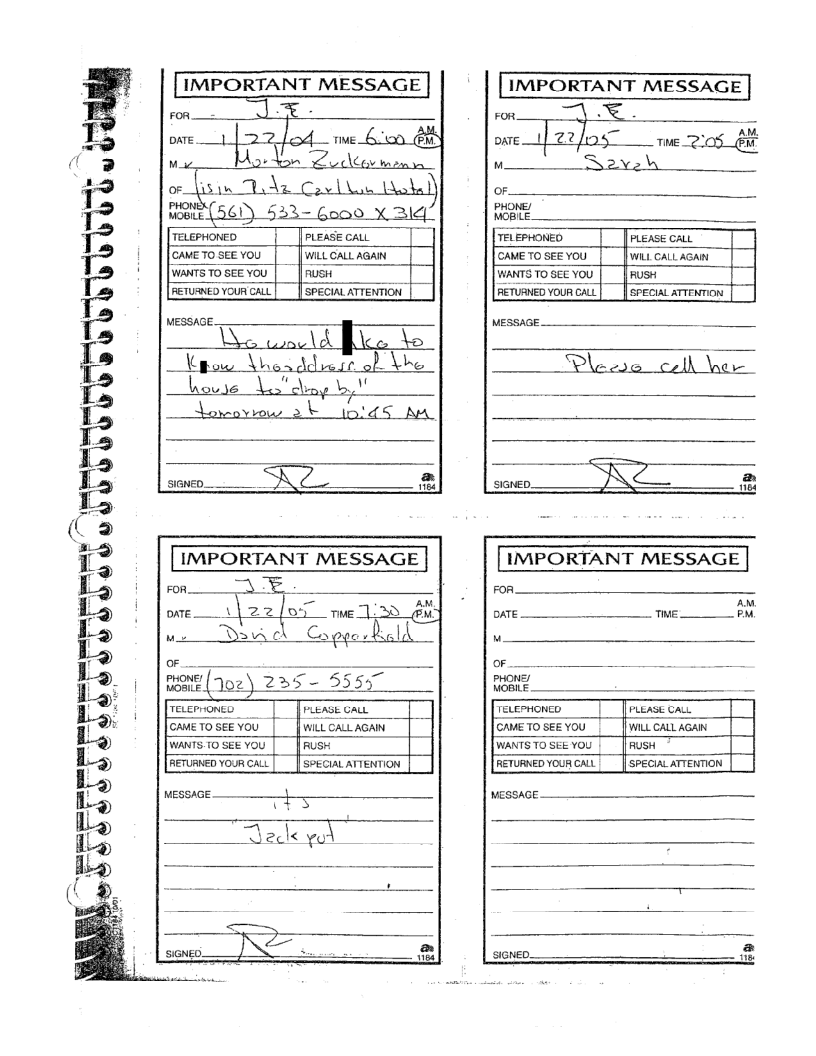 IMPORTANT MESSAGE
FOR J.E.
DATE 1/22/04 TIME 6:00 A.M. P.M.
M Morton Zuckermann
OF (is in Ritz Carlton Hotel)
PHONE/ MOBILE (561) 533-6000 X 314
TELEPHONED PLEASE CALL
CAME TO SEE YOU WILL CALL AGAIN
WANTS TO SEE YOU RUSH
RETURNED YOUR CALL SPECIAL ATTENTION
MESSAGE He would like to
know the address of the
house to "drop by"
tomorrow at 10:45 AM
SIGNED
1184
IMPORTANT MESSAGE
FOR J.E.
DATE 1/22/05 TIME 2:05 A.M. P.M.
M Sarah
OF
PHONE/
MOBILE
TELEPHONED PLEASE CALL
CAME TO SEE YOU WILL CALL AGAIN
WANTS TO SEE YOU RUSH
RETURNED YOUR CALL SPECIAL ATTENTION
MESSAGE
Please call her
SIGNED
1184
IMPORTANT MESSAGE
FOR J.E.
DATE 1/22/05 TIME 7:30 A.M. P.M.
M David Copperfield
OF
PHONE/ MOBILE (702) 235-5555
TELEPHONED PLEASE CALL
CAME TO SEE YOU WILL CALL AGAIN
WANTS TO SEE YOU RUSH
RETURNED YOUR CALL SPECIAL ATTENTION
MESSAGE it's
Jackpot
SIGNED
1184
IMPORTANT MESSAGE
FOR
DATE TIME A.M. P.M.
M
OF
PHONE/
MOBILE
TELEPHONED PLEASE CALL
CAME TO SEE YOU WILL CALL AGAIN
WANTS TO SEE YOU RUSH
RETURNED YOUR CALL SPECIAL ATTENTION
MESSAGE
SIGNED
118